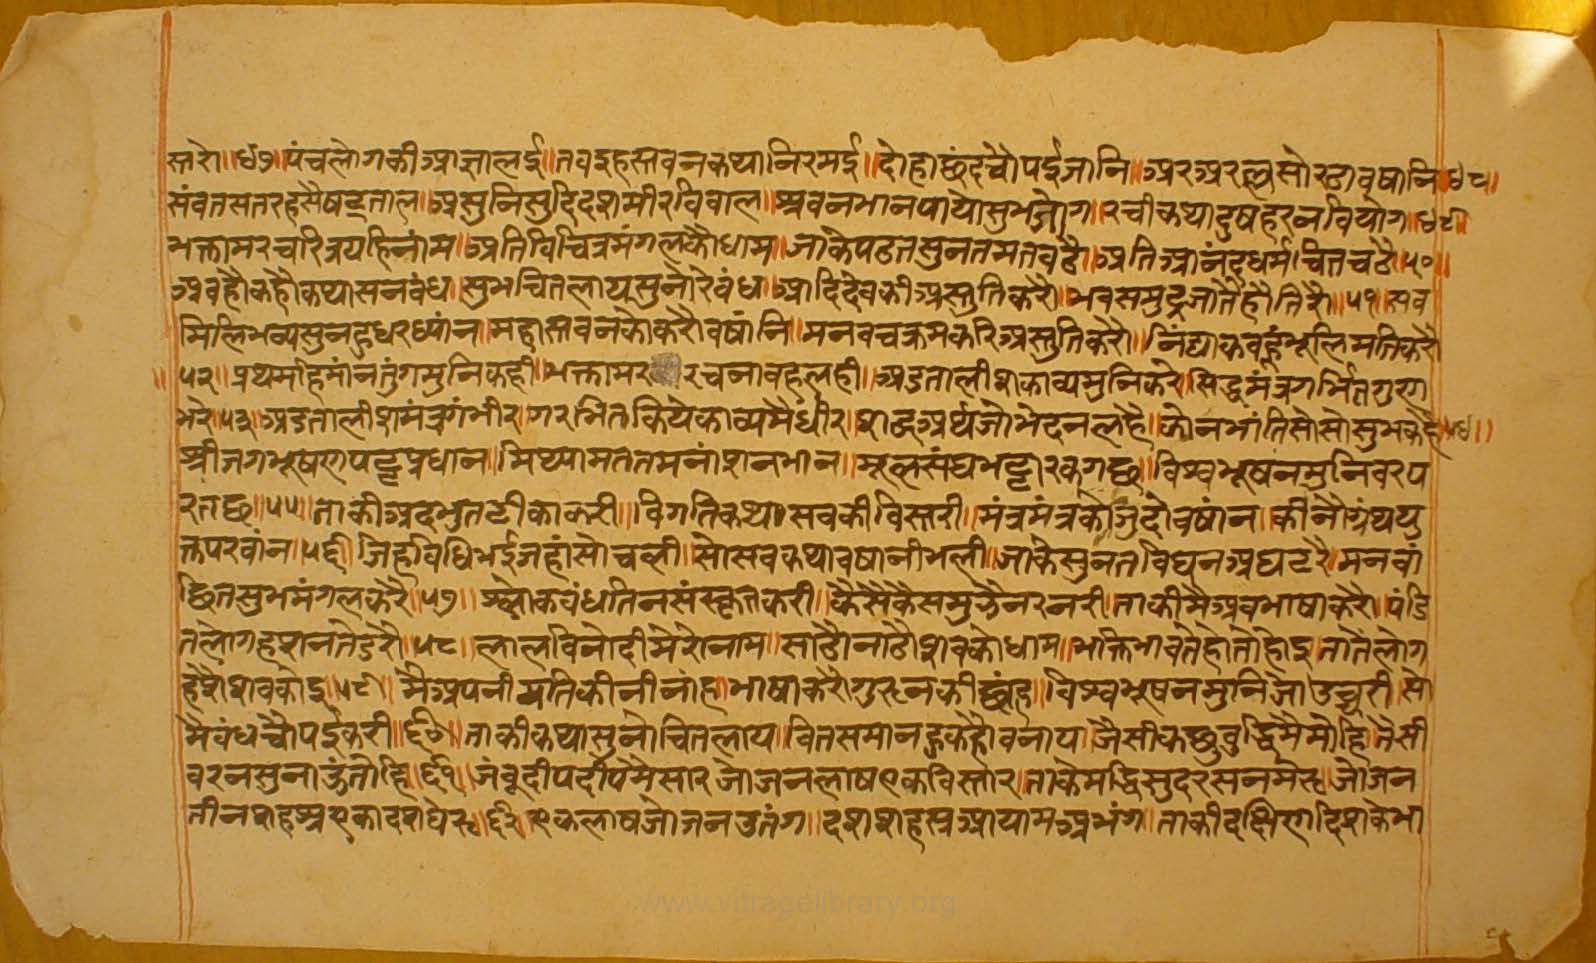 स्तरो॥४७॥पंचलोगकीआज्ञालई॥तवइहस्तवनकथानिरमई॥दोहाछंदचौपईजानि॥अरअरल्लसोरठावषानि॥४८॥
संवतसतरहसैषटताल॥असुनिसुदिदशमीरविवाल॥श्रवनभानपायोसुभजोग॥रचीकथादुषहरनवियोग॥४९॥
भक्तामरचारित्रयहिनांम॥अतिविचित्रमंगलकौधाम॥जाकेपठतसुनतमतवढै॥अतिआनंदधर्मचितचढै॥५०॥
अवहौकहौकथासनवंध॥सुभचितलायसुनोरेवंध॥आदिदेवकीअस्तुतिकरौ॥भवसमुद्रजातैहौतिरौ॥५१॥सव
मिलिभव्यसुनहुधरध्यांन॥महास्तवनकोकरौवषांनि॥मनवचक्रमकरिअस्तुतिकरौ॥निंद्याकवहूंभूलिमतिकरौ
॥५२॥प्रथमहिमांनतुंगमुनिकही॥भक्तामर रचनावहलही॥अडतालीशकाव्यमुनिकरे॥सिद्धमंत्रगर्भितगुण
भरे॥५३॥अडतालीशमंत्रगंभीर॥गरभितकियेकाव्यमैधीर॥शब्दअर्थजोभेदनलहै॥कोनभांतिसोसोसुभकहै॥५४॥
श्रीजगभूषणपट्टप्रधान॥मिथ्यामततमनांशनभान॥मूलसंघभट्टारकगछ॥विश्वभूषनमुनिवरप
रतछ॥५५॥ताकीअदभुतटीकाकरी॥विगतिकथासवकीविस्तरी॥मंत्रमंत्रकेजिदोवषांन॥कीनौग्रंथयु
क्तपरवांन॥५६॥जिहविधिभईजहांसोचली॥सोसवकथावषानीभली॥जाकेसुनतविघनअघटरै॥मनवां
छितसुभमंगलकरै॥५७॥श्लोकवंधतिनसंस्कृतकरी॥कैसैकैसमुझैनरनरी॥ताकीमैअवभाषाकरौ॥पंडि
तलोगहशनतेडरौ॥५८॥लालविनोदीमेरोनाम॥साठौनाठौशवकोधाम॥भक्तिभावतेहोतोहोइ॥तातैलोग
हशैशवकोइ॥५९॥मैअपनीमतिकीनीनांह॥भाषाकरौगुरुनकीछांह॥विश्वभूषनमुनिजोउच्चरी॥सो
मैवंधचौपईकरी॥६०॥ताकीकथासुनोचितलाय॥वितसमानहुकहौवनाय॥जैसीकछुवुद्धिमैमोहि॥तैसी
वरनसुनाऊंतोहि॥६१॥जंवूदीपदीपमैसार॥जोजनलाषएकविस्तार॥ताकेमद्धिसुदरसनमेरु॥जोजन
तीनशहश्रएकादशघेरु॥६२॥एकलाषजोजनउतंग॥दशशहस्रआयामअभंग॥ताकीदक्षिणदिशकेभा
www.vitragelibrary.org